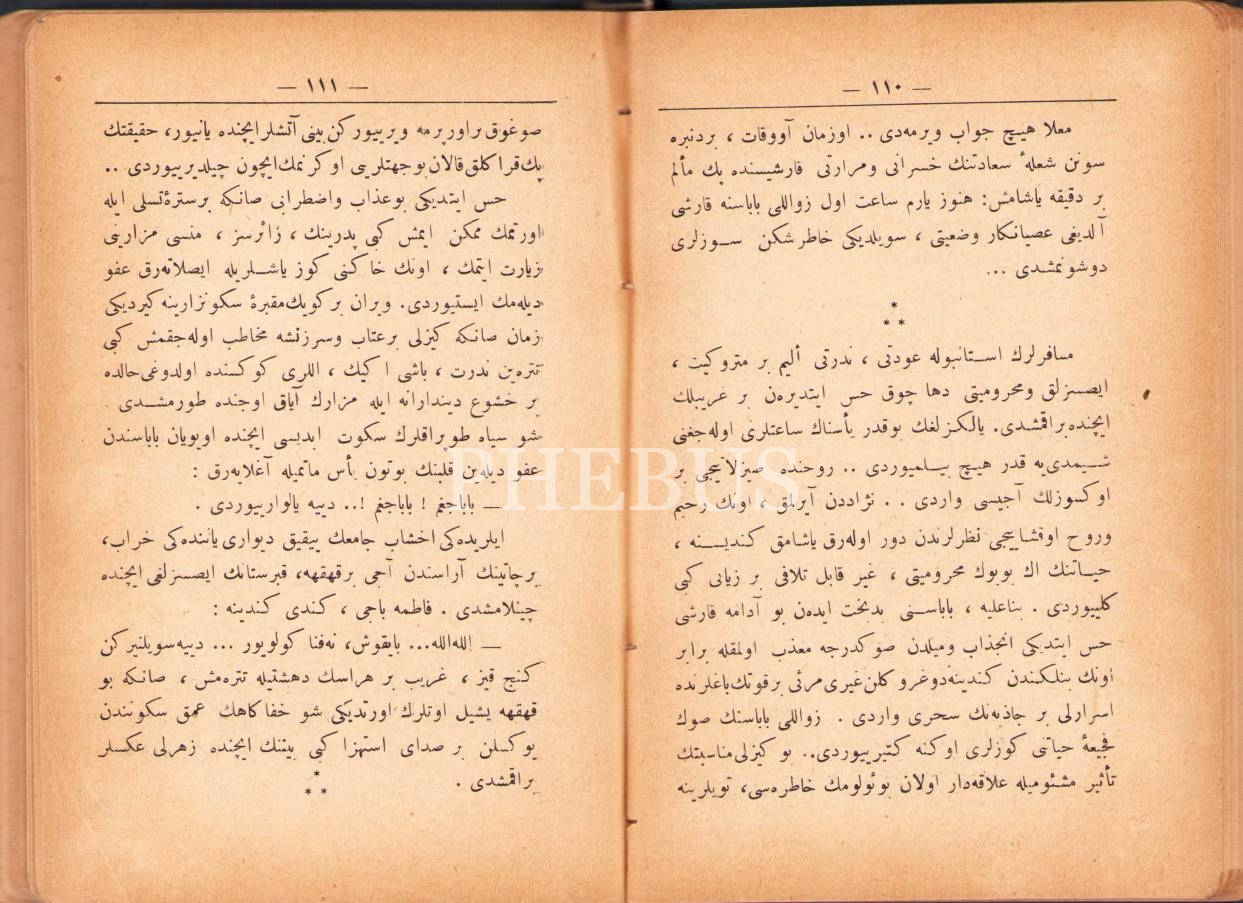 — ١١٠ —
معلا هيچ جواب ويرمه‌دى .. اوزمان آووقات ، بردنبره
سونن شعلهٔ سعادتنك خسرانى ومرارتى قارشيسنده پك مألم
بر دقيقه ياشامش: هنوز يارم ساعت اول زواللى باباسنه قارشى
آلديغى عصيانكار وضعيتى ، سويلديكى خاطر شكن سـوزلرى
دوشونمشدى ...
*
* *
مسافرلرك استانبوله عودتى ، ندرتى أليم بر متروكيت ،
ايصسزلق ومحروميتى دها چوق حس ايتديره‌ن بر غريبلك
ايچنده براقمشدى. يالكزلغك بوقدر يأسناك ساعتلرى اوله‌جغنى
شـيمدى‌يه قدر هيچ بيـلميوردى .. روحنده صيزلاتيجى بر
اوكسوزلك آجيسى واردى . . نژاددن آيرلمق ، اونك رحيم
وروح اوقشاييجى نظرلرندن دور اوله‌رق ياشامق كنديسـنه ،
حيـاتنك اك بويوك محروميتى ، غير قابل تلافى بر زيانى كبى
كلييوردى . بناءعليه ، باباسـنى بدبخت ايده‌ن بو آدامه قارشى
حس ايتديكى انجذاب وميلدن صوكدرجه معذب اولمقله برابر
اونك بنلكندن كندينه دوغرو كلن غيرى مرئى برقوتك باغلرنده
اسرارلى بر جاذبه‌نك سحرى واردى . زواللى باباسنك صوك
فجيعهٔ حياتى كوزلرى اوكنه كتيرييوردى.. بو كيزلى مناسبتك
تأثير مشئوميله علاقه‌دار اولان بوئولومك خاطره‌سى، تويلرينه
— ١١١ —
صوغوق براورپرمه ويرييور كن بينى آتشلر ايچنده يانيور، حقيقتك
پك قراكلق قالان بوجهتلرينى اوكرنمك ايچون چيلديرييوردى ..
حس ايتديكى بوعذاب واضطرابى صانكه برسترهٔ تسلى ايله
اورتمك ممكن ايمش كبى پدرينك ، زائرسز ، منسى مزارينى
زيارت ايتمك ، اونك خاكنى كوز ياشـلريله ايصلاته‌رق عفو
ديله‌مك ايستيوردى. ويران بر كويك مقبرهٔ سكونزارينه كيرديكى
زمان صانكه كيزلى برعتاب وسرزنشه مخاطب اوله‌جقمش كبى
تتره‌ين ندرت ، باشى اكيك ، اللرى كوكسنده اولدوغى حالده
بر خشوع ديندارانه ايله مزارك آياق اوجنده طورمشـدى .
شو سياه طوپراقلرك سكوت ابديسى ايچنده اويويان باباسندن
عفو ديله‌ين قلبنك بوتون يأس ماتميله آغلايه‌رق :
— باباجغم ! باباجغم !.. دييه يالوارييوردى .
ايلريده‌كى اخشاب جامعك ييقيق ديوارى ياننده‌كى خراب،
بر چاتينك آراسندن آجى برقهقهه، قبرستانك ايصسزلغى ايچنده
چينلامشدى . فاطمه باجى ، كندى كندينه :
— الله الله... بايقوش، نه‌فنا كولويور ... دييه سويلنيركن
كنج قيز ، غريب بر هراسك دهشتيله تتره‌مش ، صانكه بو
قهقهه يشيل اوتلرك اورتديكى شو خفاكاهك عمق سكوتندن
يوكسلن بر صداى استهزا كبى بيننك ايچنده زهرلى عكسلر
براقمشدى .
*
* *
PHEBUS